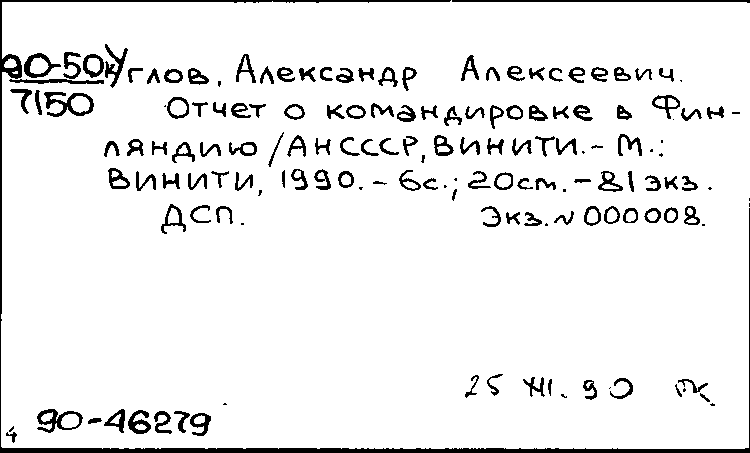 90-50к Углов, Александр Алексеевич.
7150 Отчет о командировке в Фин-
ляндию / АН СССР, ВИНИТИ. - М.:
ВИНИТИ, 1990. - 6с.; 20см. - 81 экз.
ДСП. Экз. N 000008.
25 XII. 90
4 90-46279